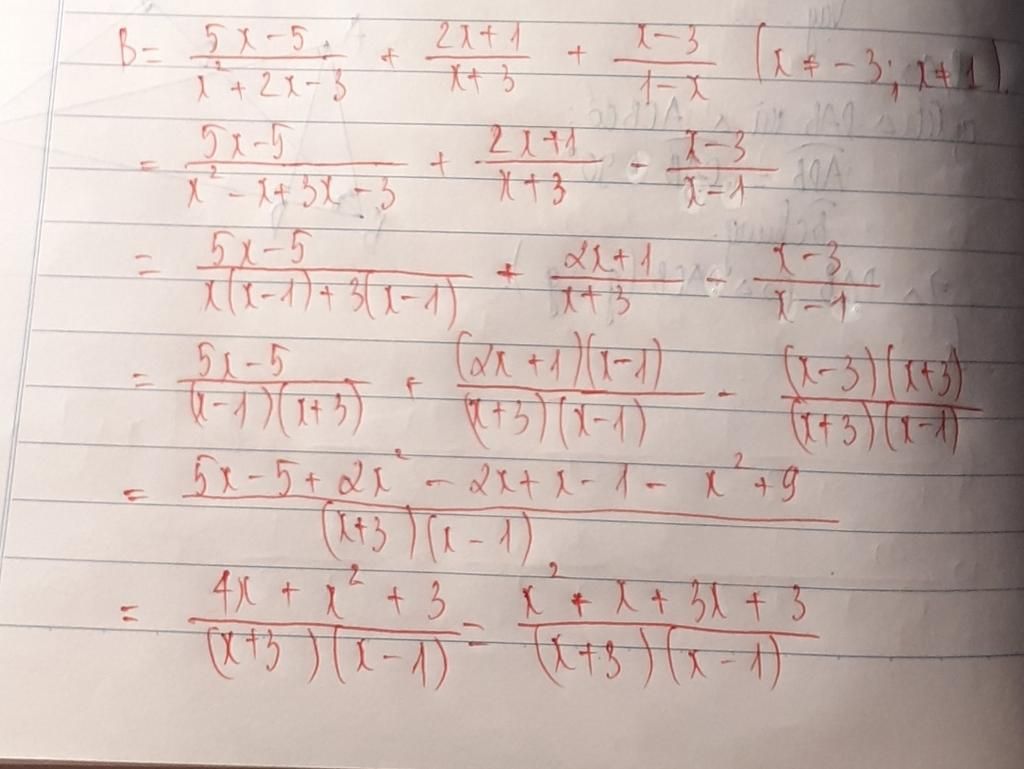 B = (5x-5)/(x²+2x-3) + (2x+1)/(x+3) + (x-3)/(1-x) (x ≠ -3; x ≠ 1).
= (5x-5)/(x²-x+3x-3) + (2x+1)/(x+3) - (x-3)/(x-1)
= (5x-5)/(x(x-1)+3(x-1)) + (2x+1)/(x+3) - (x-3)/(x-1)
= (5x-5)/((x-1)(x+3)) + ((2x+1)(x-1))/((x+3)(x-1)) - ((x-3)(x+3))/((x+3)(x-1))
= (5x-5+2x²-2x+x-1-x²+9)/((x+3)(x-1))
= (4x+x²+3)/((x+3)(x-1)) = (x²+x+3x+3)/((x+3)(x-1))